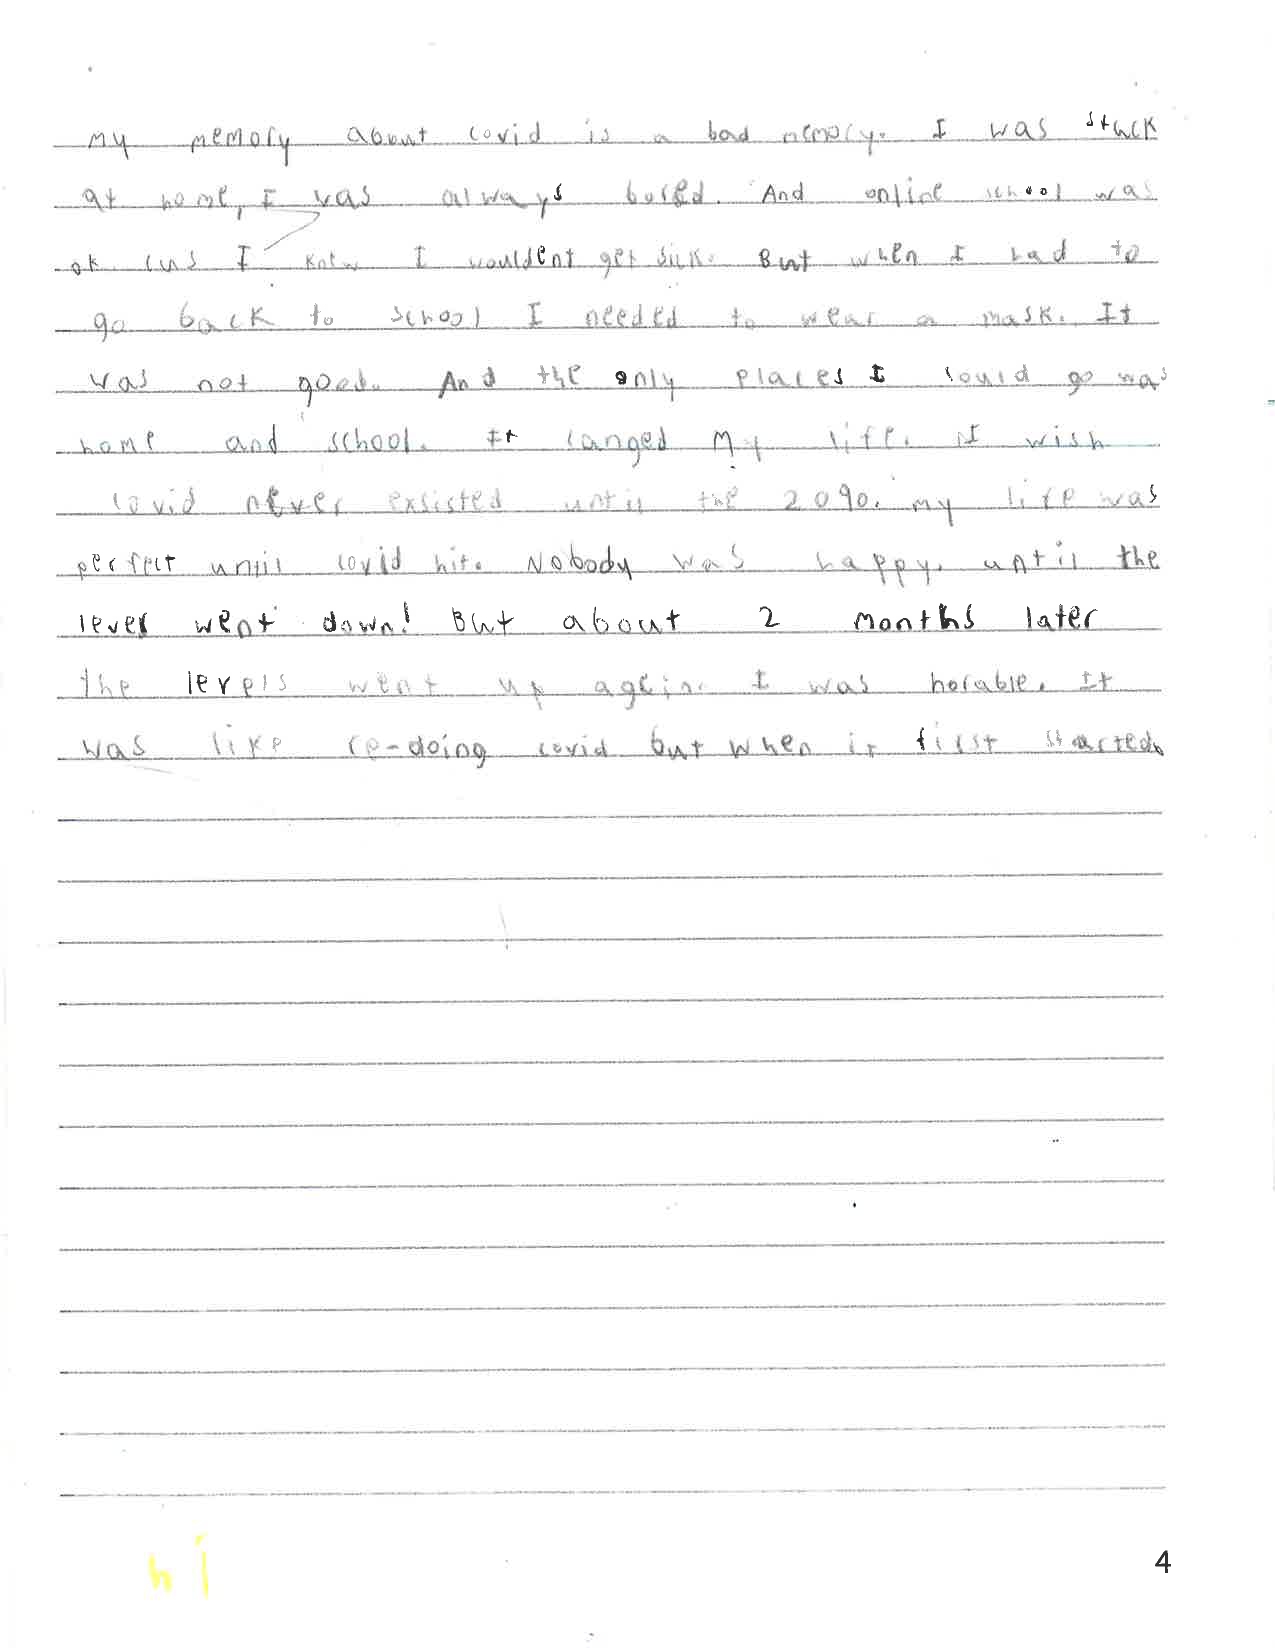 my memory about covid is a bad memory. I was stuck
at home, I was always bored. And online school was
ok cus I knew I wouldent get sick. But when I had to
go back to school I needed to wear a mask. It
was not good. And the only places I could go was
home and school. It canged my life. I wish
covid never exsisted until the 2090. my life was
perfect until covid hit. Nobody was happy. until the
level went down! But about 2 months later
the levels went up agein. I was horable. It
was like re-doing covid but when it first started.
hi
4